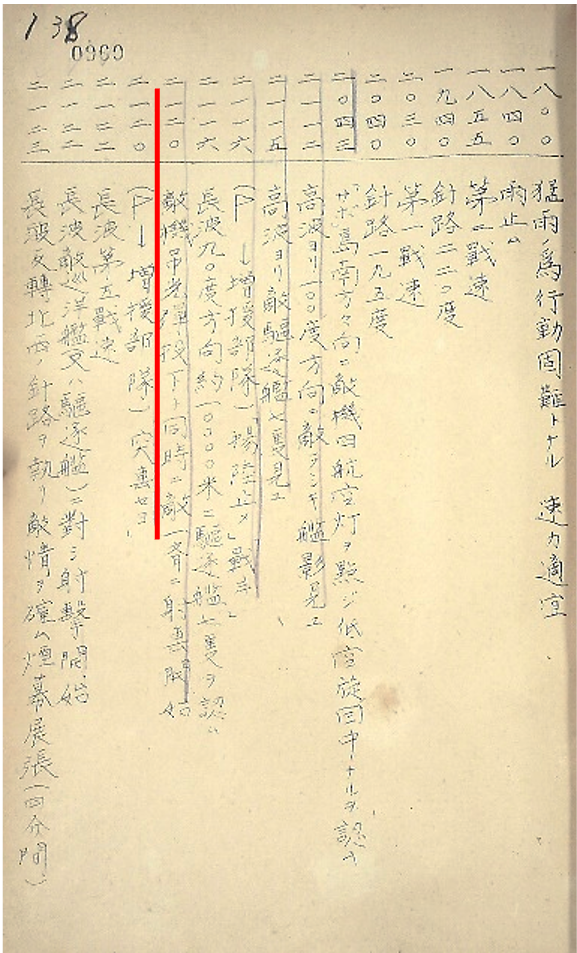 138
0960
一八〇〇 猛雨ノ爲行動困難トナル 速力適宜
一八四〇 雨止ム
一八五五 第二戰速
一九四〇 針路二二〇度
二〇三〇 第一戰速
二〇四〇 針路一九五度
二〇四三 サボ島南方ニ向ヒ敵機四航空灯ヲ點ジ低空旋回中ナルヲ認ム
二一一二 高波ヨリ一〇〇度方向ニ敵ラシキ艦影見ユ
二一一五 高波ヨリ敵驅逐艦七隻見ユ
二一一六 (P→増援部隊)「揚陸止メ」「戰斗」
二一一六 長波九〇度方向約一〇〇〇〇米ニ驅逐艦七隻ヲ認ム
二一二〇 敵機吊光彈投下ト同時ニ敵一斉ニ射撃開始
二一二〇 (P→増援部隊)突撃セヨ
二一二二 長波第五戰速
二一二二 長波敵巡洋艦(又ハ驅逐艦)ニ對シ射撃開始
二一二三 長波反轉北西ノ針路ヲ執リ敵情ヲ確ム煙幕展張(四分間)